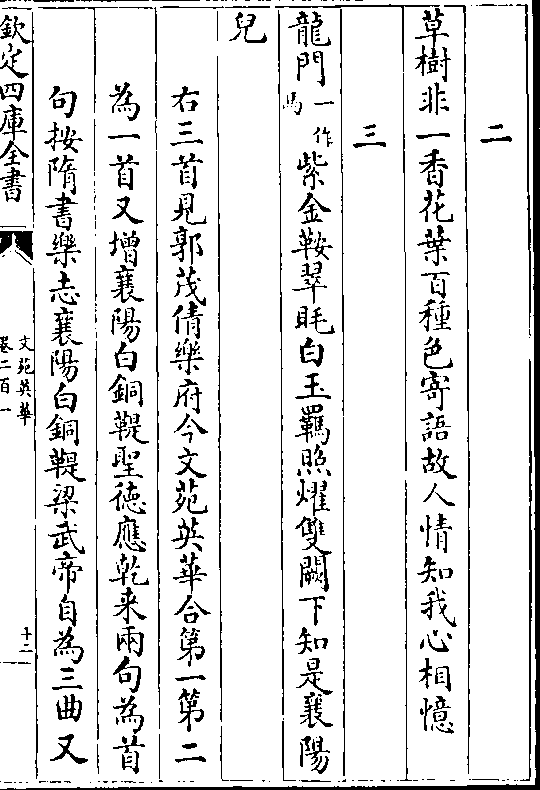 二
草樹非一香花葉百種色寄語故人情知我心相憶
三
龍門一作馬紫金鞍翠眊白玉羈照燿雙闕下知是襄陽
兒
右三首見郭茂倩樂府今文苑英華合第一第二
為一首又增襄陽白銅鞮聖德應乾来兩句為首
句按隋書樂志襄陽白銅鞮梁武帝自為三曲又
欽定四庫全書
文苑英華
卷二百一
十二